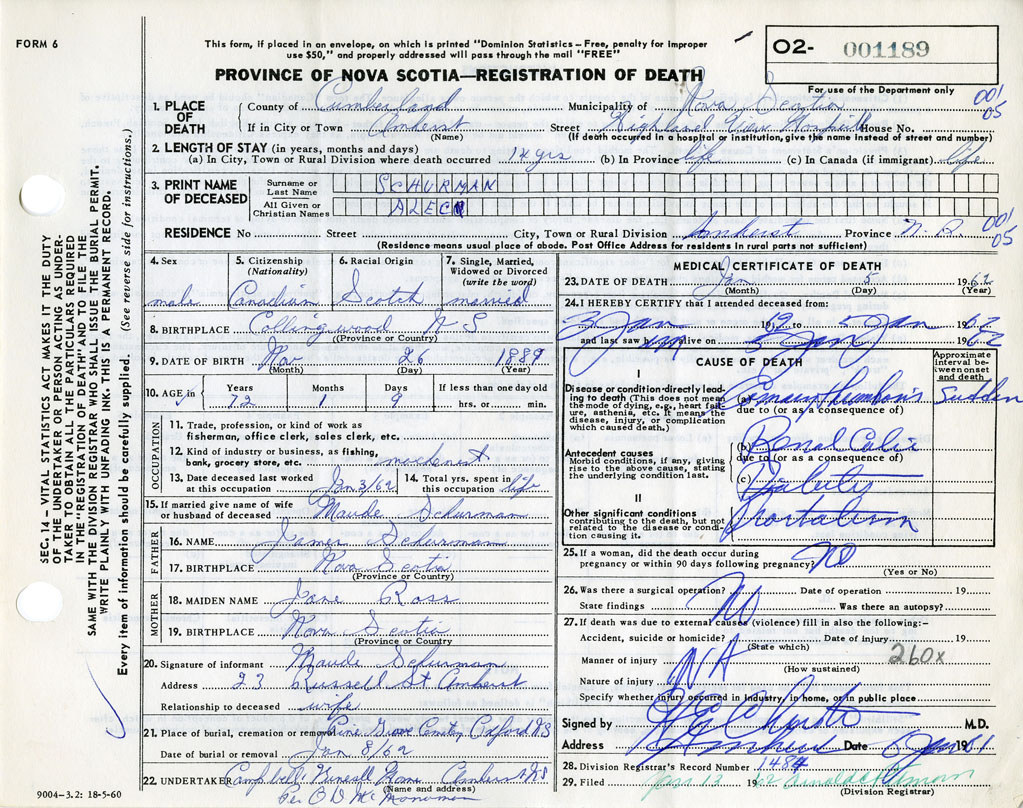 FORM 6
This form, if placed in an envelope, on which is printed "Dominion Statistics – Free, penalty for improper
use $50," and properly addressed will pass through the mail "FREE"
02- 001189
For use of the Department only
PROVINCE OF NOVA SCOTIA—REGISTRATION OF DEATH
001
05
1. PLACE OF DEATH
County of Cumberland Municipality of Nova Scotia
If in City or Town Amherst Street Highland View Hospital House No.
(Name) (If death occurred in a hospital or institution, give the name instead of street and number)
2. LENGTH OF STAY (in years, months and days)
(a) In City, Town or Rural Division where death occurred 14 yrs (b) In Province life (c) In Canada (if immigrant) life
3. PRINT NAME OF DECEASED
Surname or Last Name SCHURMAN
All Given or Christian Names ALEC
RESIDENCE No Street City, Town or Rural Division Amherst Province N.S.
001
05
(Residence means usual place of abode. Post Office Address for residents in rural parts not sufficient)
4. Sex male
5. Citizenship (Nationality) Canadian
6. Racial Origin Scotch
7. Single, Married, Widowed or Divorced (write the word) married
8. BIRTHPLACE Collingwood N S
(Province or Country)
9. DATE OF BIRTH Nov 26 1889
(Month) (Day) (Year)
10. AGE in Years 72 Months 1 Days 9 If less than one day old hrs. or min.
OCCUPATION
11. Trade, profession, or kind of work as fisherman, office clerk, sales clerk, etc.
12. Kind of industry or business, as fishing, bank, grocery store, etc.
13. Date deceased last worked at this occupation Jan 3/62
14. Total yrs. spent in this occupation life
15. If married give name of wife or husband of deceased Maude Schurman
FATHER
16. NAME James Schurman
17. BIRTHPLACE Nova Scotia
(Province or Country)
MOTHER
18. MAIDEN NAME Jane Ross
19. BIRTHPLACE Nova Scotia
(Province or Country)
20. Signature of informant Maude Schurman
Address 23 Russell St Amherst
Relationship to deceased wife
21. Place of burial, cremation or removal Pine Grove Oxford NS
Date of burial or removal Jan 8/62
22. UNDERTAKER Campbell Funeral Home Amherst NS
(Name and address)
Per
9004-3.2: 18-5-60
MEDICAL CERTIFICATE OF DEATH
23. DATE OF DEATH Jan 5 1962
(Month) (Day) (Year)
24. I HEREBY CERTIFY that I attended deceased from:
3 Jan 19 62 to 5 Jan 1962
and last saw him alive on 5 Jan 1962
CAUSE OF DEATH
Approximate interval between onset and death
I
Disease or condition directly leading to death (This does not mean the mode of dying, e.g., heart failure, asthenia, etc. It means the disease, injury, or complication which caused death.)
(a) Coronary Thrombosis Sudden
due to (or as a consequence of)
Antecedent causes
Morbid conditions, if any, giving rise to the above cause, stating the underlying condition last.
(b) Renal Colic
due to (or as a consequence of)
(c)
II
Other significant conditions contributing to the death, but not related to the disease or condition causing it.
25. If a woman, did the death occur during pregnancy or within 90 days following pregnancy? NO
(Yes or No)
26. Was there a surgical operation? No Date of operation 19
State findings Was there an autopsy?
27. If death was due to external causes (violence) fill in also the following:–
Accident, suicide or homicide? Date of injury 19
(State which)
260x
Manner of injury NA
(How sustained)
Nature of injury
Specify whether injury occurred in industry, in home, or in public place
Signed by M.D.
Address Amherst Date 6 Jan 1961
28. Division Registrar's Record Number 1484
29. Filed Jan 13 1962
(Division Registrar)
SEC. 14 – VITAL STATISTICS ACT MAKES IT THE DUTY
OF THE UNDERTAKER OR PERSON ACTING AS UNDER-
TAKER TO OBTAIN ALL THE PARTICULARS REQUIRED
IN THE "REGISTRATION OF DEATH" AND TO FILE THE
SAME WITH THE DIVISION REGISTRAR WHO SHALL ISSUE THE BURIAL PERMIT.
WRITE PLAINLY WITH UNFADING INK. THIS IS A PERMANENT RECORD.
Every item of information should be carefully supplied. (See reverse side for instructions.)